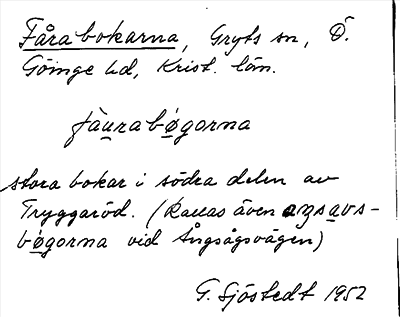 Fårabokarna, Gryts sn, Ö.
Göinge hd, Krist. län.
fàurabøgorna
stora bokar i södra delen av
Tryggaröd. (Kallas även aŋsavs-
bøgorna vid Ångsågsvägen)
G. Sjöstedt 1952